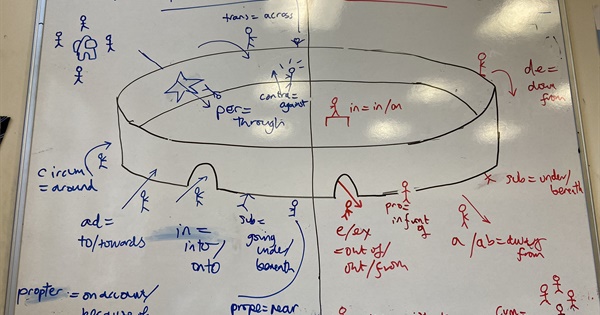 trans = across
de =
down
from
contra =
against
per =
through
in = in/on
circum
= around
sub = under/
beneath
ad =
to/towards
in =
into/
onto
sub =
going
under/
beneath
e/ex
= out of/
out/from
pro =
in front
of
a/ab = away
from
propter = on account/
because of
prope = near
cum =